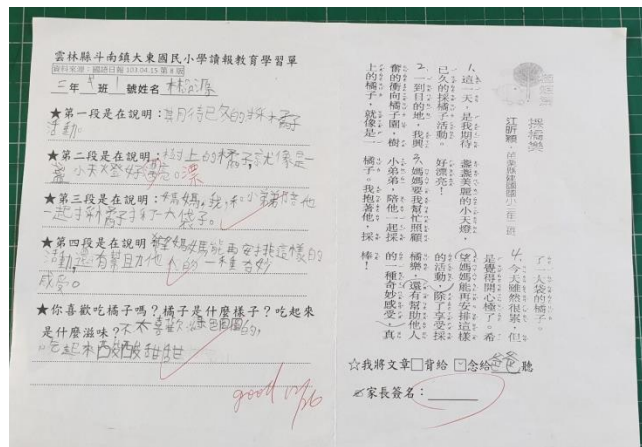 雲林縣斗南鎮大東國民小學讀報教育學習單
資料來源：國語日報 101.04.15 第 8 版
三年 班 1 號姓名 林
★第一段是在說明：期待已久的採橘子
活動。
★第二段是在說明：樹上的橘子就像是一
盞小天燈好漂亮。漂
★第三段是在說明：媽媽、我和小弟弟陪他
一起採橘子採了一大袋子。
★第四段是在說明：希望媽媽能再安排這樣的
活動,還有幫助他人的一種奇妙
感受。
★你喜歡吃橘子嗎？橘子是什麼樣子？吃起來
是什麼滋味？不太喜歡,綠色圓圓的,
吃起來酸酸甜甜
good 12/26
採橘樂
江昕穎．苗栗縣建國國小三年 班
1.這一天，是我期待
已久的採橘子活動。
2.一到目的地，我興
奮的衝向橘子園，樹
上的橘子，就像是一
盞盞美麗的小天燈，
好漂亮！
3.媽媽要我幫忙照顧
小弟弟，陪他一起採
橘子。我抱著他，採
了一大袋的橘子。
4.今天雖然很累，但
是覺得開心極了。希
望媽媽能再安排這樣
的活動，除了享受採
橘樂，還有幫助他人
的一種奇妙感受，真
棒！
☆我將文章□背給 □念給爸爸聽
家長簽名：